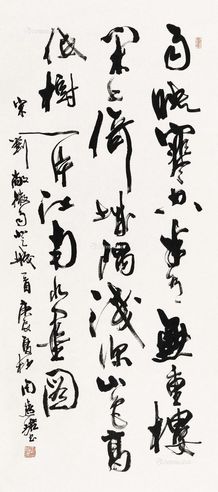 雨映寒空半有無重樓
閑上倚城隅淺深山色高
低樹一片江南水墨圖
宋劉敞微雨登城一首庚辰夏周慧珺書